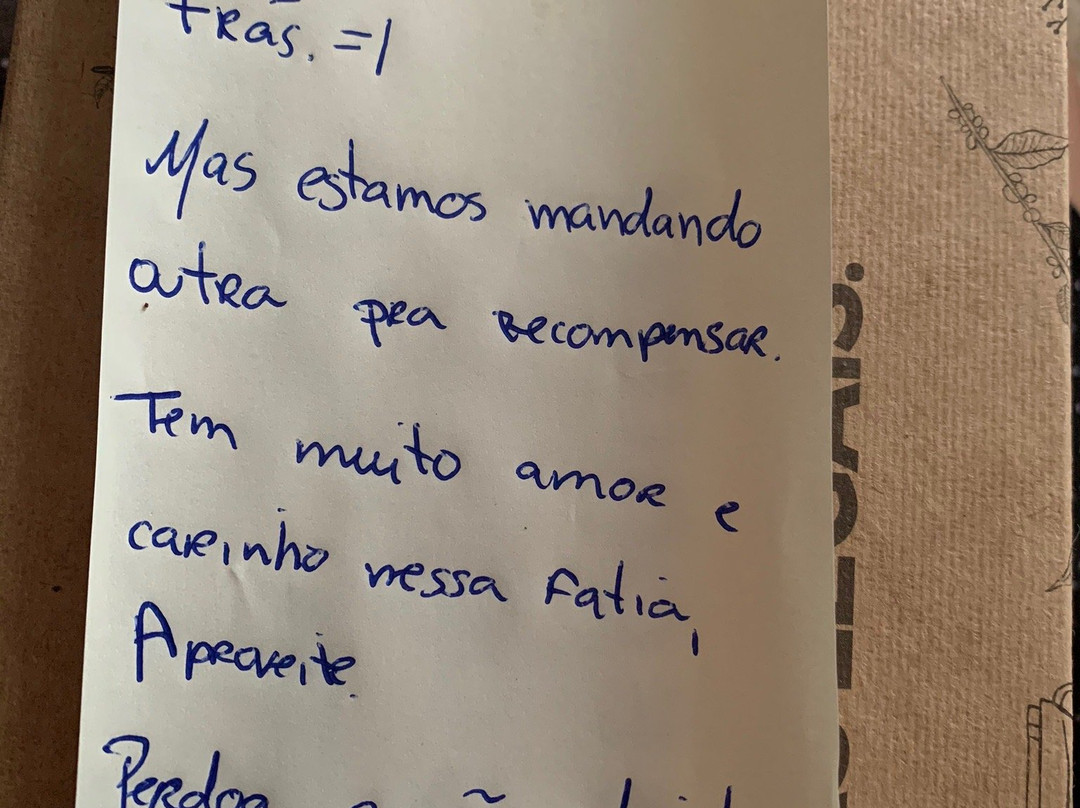 trás. =/
Mas estamos mandando
outra pra recompensar.
Tem muito amor e
carinho nessa fatia,
Aproveite.
Perdoa